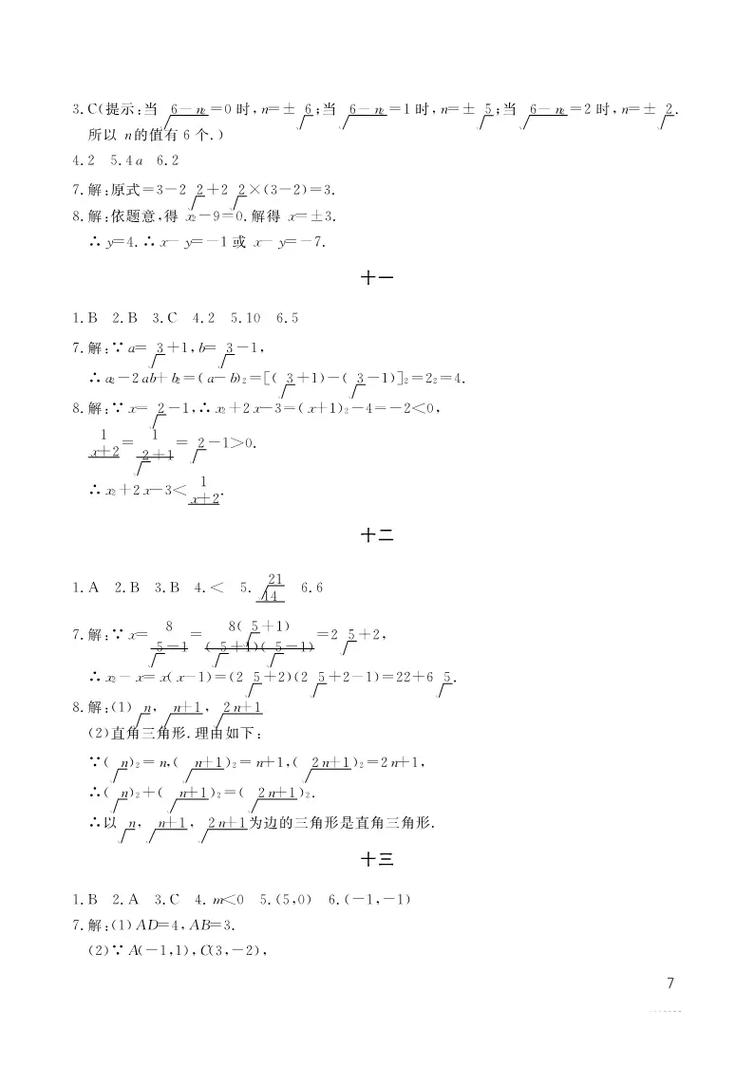 3. C(提示:当 √(6-n²)=0 时,n=±√6;当 √(6-n²)=1 时,n=±√5;当 √(6-n²)=2 时,n=±√2.
所以 n的值有 6 个.)
4. 2 5. 4a 6. 2
7. 解:原式=3-2√2+2√2×(3-2)=3.
8. 解:依题意,得 x²-9=0. 解得 x=±3.
∴ y=4. ∴ x-y=-1 或 x-y=-7.
十一
1. B 2. B 3. C 4. 2 5. 10 6. 5
7. 解:∵ a=√3+1,b=√3-1,
∴ a²-2ab+b²=(a-b)²=[(√3+1)-(√3-1)]²=2²=4.
8. 解:∵ x=√2-1,∴ x²+2x-3=(x+1)²-4=-2<0,
1/(x+2)=1/(√2+1)=√2-1>0.
∴ x²+2x-3<1/(x+2).
十二
1. A 2. B 3. B 4. < 5. √21/14 6. 6
7. 解:∵ x=8/(√5-1)=8(√5+1)/((√5+1)(√5-1))=2√5+2,
∴ x²-x=x(x-1)=(2√5+2)(2√5+2-1)=22+6√5.
8. 解:(1) √n,√(n+1),√(2n+1)
(2)直角三角形. 理由如下:
∵(√n)²=n,(√(n+1))²=n+1,(√(2n+1))²=2n+1,
∴(√n)²+(√(n+1))²=(√(2n+1))².
∴以√n,√(n+1),√(2n+1)为边的三角形是直角三角形.
十三
1. B 2. A 3. C 4. m<0 5. (5,0) 6. (-1,-1)
7. 解:(1) AD=4,AB=3.
(2)∵ A(-1,1),C(3,-2),
7